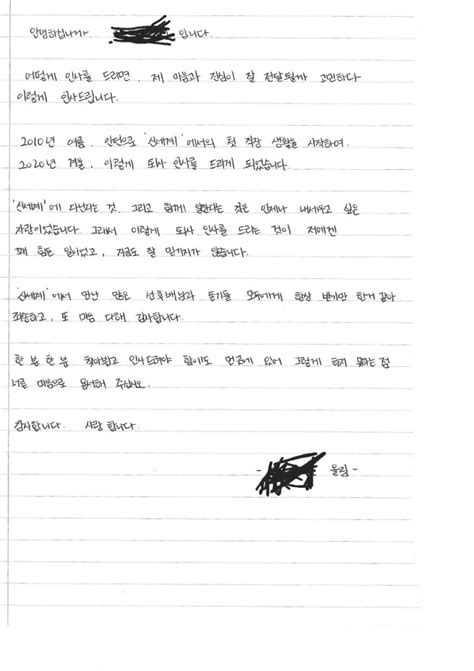 안녕하십니까. 입니다.
어떻게 인사를 드리면, 제 마음과 진심이 잘 전달될까 고민하다
이렇게 인사드립니다.
2010년 여름, 인턴으로 '신세계'에서의 첫 직장 생활을 시작하여.
2020년 겨울, 이렇게 퇴사 인사를 드리게 되었습니다
'신세계'에 다닌다는 것. 그리고 함께 일한다는 것은 언제나 내세우고 싶은
자랑이었습니다. 그래서 이렇게 퇴사 인사를 드리는 것이 저에겐
꽤 힘든 일이었고, 지금도 잘 믿기지가 않습니다.
'신세계'에서 만난 많은 선후배님과 동기들 모두에게 항상 받기만 한거 같아
죄송하고, 또 마음 다해 감사합니다.
한 분 한 분 찾아뵙고 인사드려야 함에도 먼곳에 있어 그렇게 하지 못하는 점
너른 마음으로 용서해 주십시오.
감사합니다. 사랑 합니다.
- 올림 -